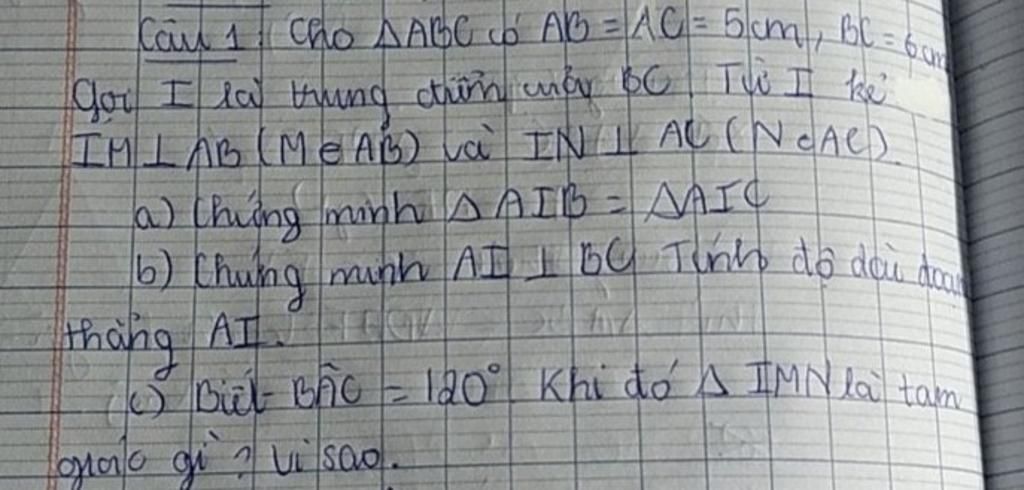 Câu 1 Cho ΔABC có AB = AC = 5cm, BC = 6cm
Gọi I là trung điểm của BC Từ I kẻ
IM ⊥ AB (M ∈ AB) và IN ⊥ AC (N ∈ AC)
a) Chứng minh Δ AIB = ΔAIC
b) Chứng minh AI ⊥ BC Tính độ dài đoạn
thẳng AI.
c) Biết BÂC = 120° Khi đó Δ IMN là tam
giác gì ? Vì sao.